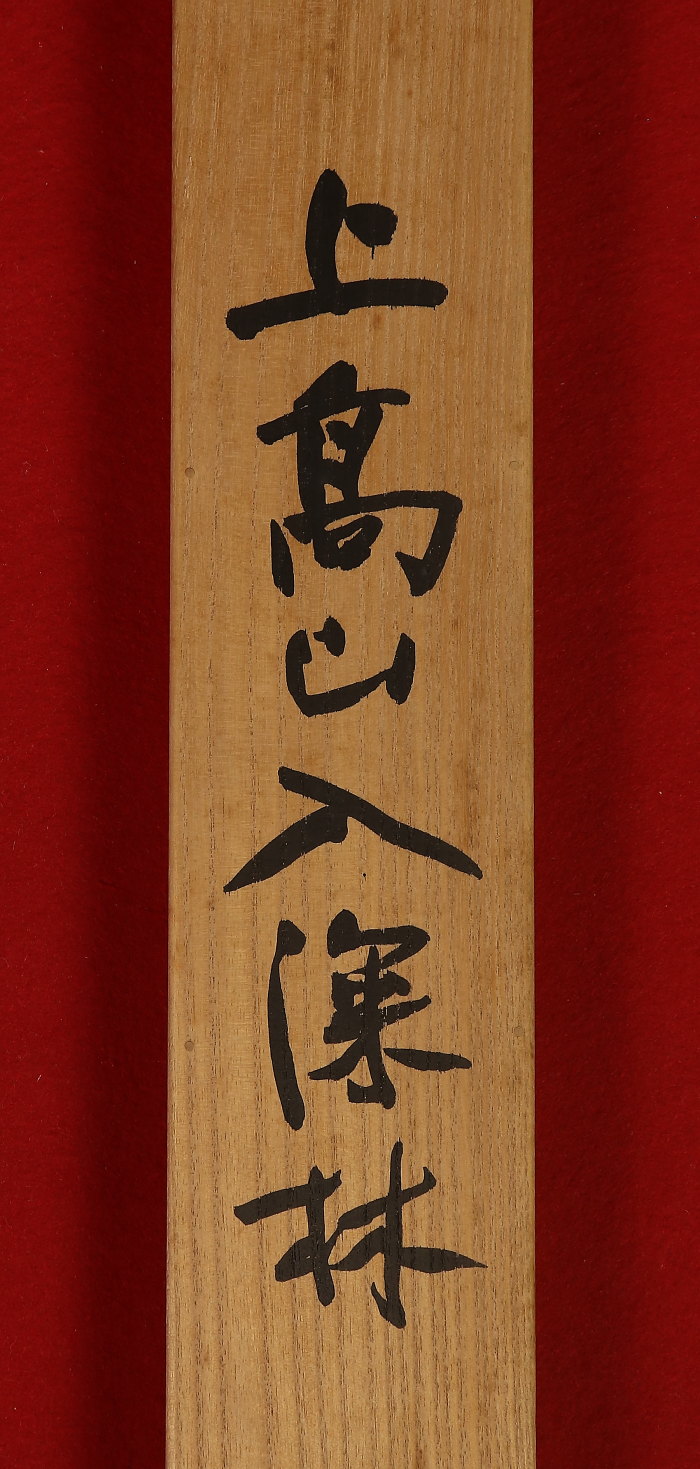 上高山入深林